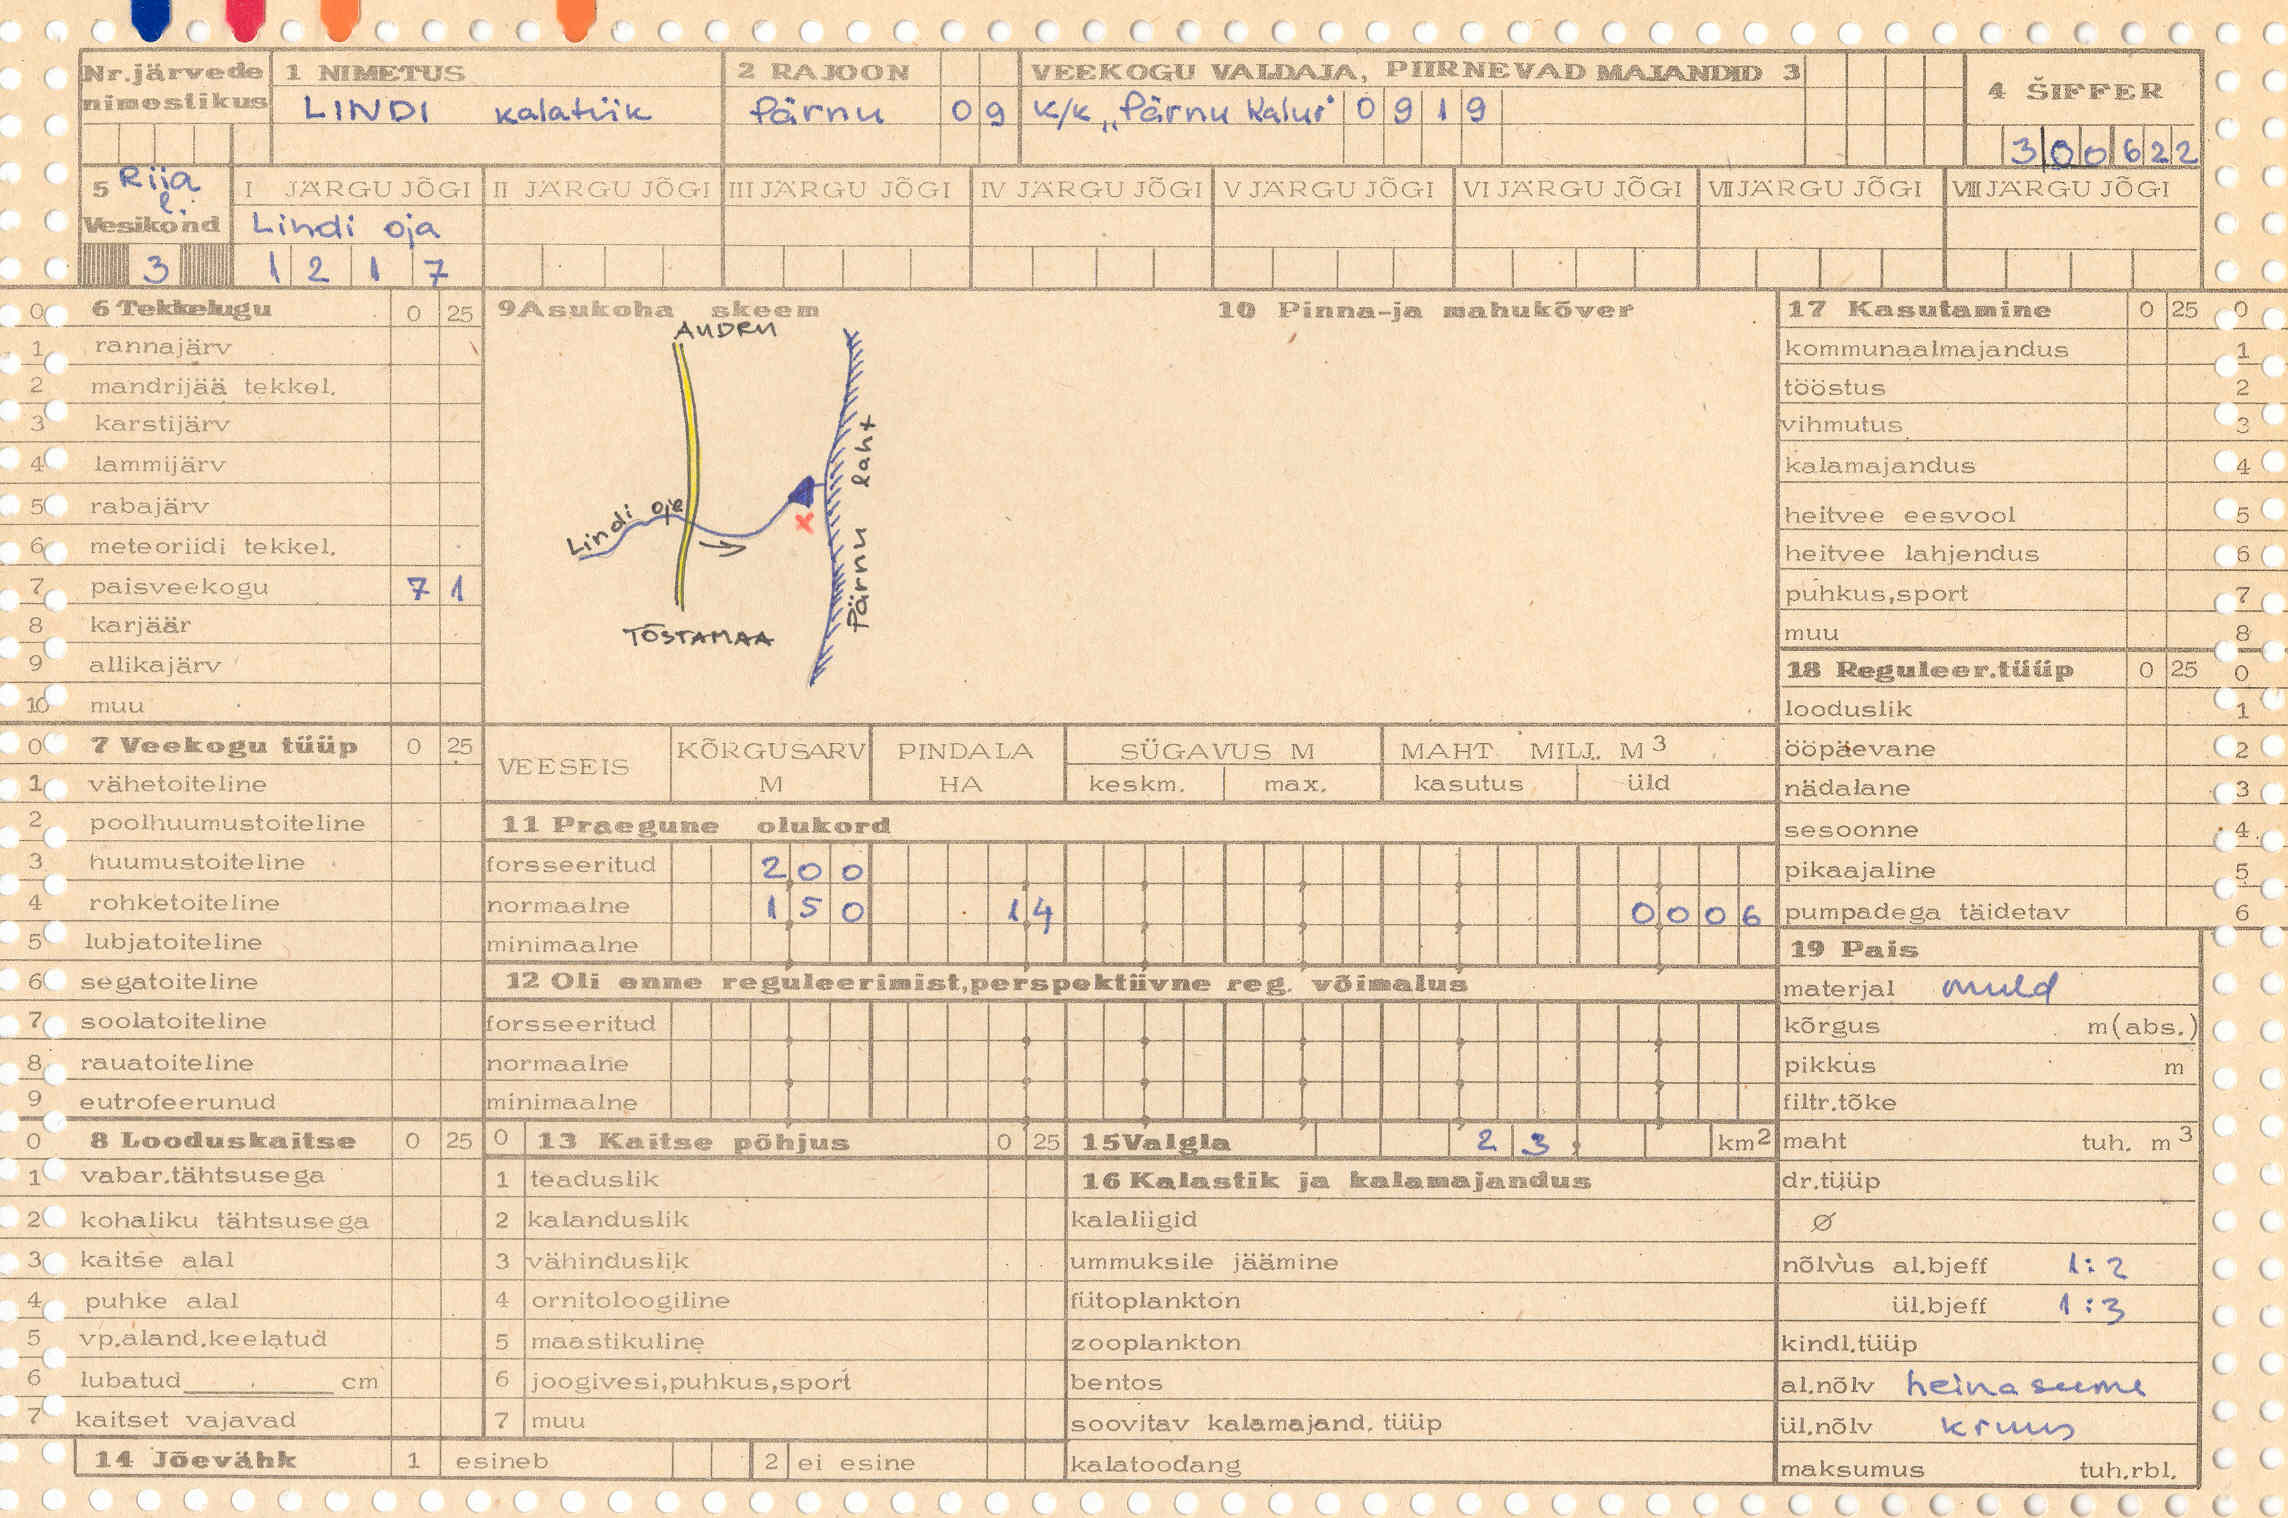 Nr.järvede nimestikus
1 NIMETUS
LINDI kalatiik
2 RAJOON
Pärnu 09
VEEKOGU VALDAJA, PIIRNEVAD MAJANDID 3
k/k „Pärnu Kalur" 0919
4 ŠIFFER
300622
5 Riia l.
Vesikond
3
I JÄRGU JÕGI
Lindi oja
1217
II JÄRGU JÕGI
III JÄRGU JÕGI
IV JÄRGU JÕGI
V JÄRGU JÕGI
VI JÄRGU JÕGI
VII JÄRGU JÕGI
VIII JÄRGU JÕGI
0 6 Tekkelugu 0 25
1 rannajärv
2 mandrijää tekkel.
3 karstijärv
4 lammijärv
5 rabajärv
6 meteoriidi tekkel.
7 paisveekogu 7 1
8 karjäär
9 allikajärv
10 muu
0 7 Veekogu tüüp 0 25
1 vähetoiteline
2 poolhuumustoiteline
3 huumustoiteline
4 rohketoiteline
5 lubjatoiteline
6 segatoiteline
7 soolatoiteline
8 rauatoiteline
9 eutrofeerunud
0 8 Looduskaitse 0 25
1 vabar.tähtsusega
2 kohaliku tähtsusega
3 kaitse alal
4 puhke alal
5 vp.aland.keelatud
6 lubatud cm
7 kaitset vajavad
9 Asukoha skeem
AUDRU
Lindi oja
Pärnu laht
x
TÕSTAMAA
10 Pinna-ja mahukõver
VEESEIS
KÕRGUSARV M
PINDALA HA
SÜGAVUS M
keskm. max.
MAHT MILJ. M3
kasutus üld
11 Praegune olukord
forsseeritud 200
normaalne 150 14 0006
minimaalne
12 Oli enne reguleerimist,perspektiivne reg. võimalus
forsseeritud
normaalne
minimaalne
0 13 Kaitse põhjus 0 25
1 teaduslik
2 kalanduslik
3 vähinduslik
4 ornitoloogiline
5 maastikuline
6 joogivesi,puhkus,sport
7 muu
14 Jõevähk 1 esineb 2 ei esine
15 Valgla 23 km2
16 Kalastik ja kalamajandus
kalaliigid
ummuksile jäämine
fütoplankton
zooplankton
bentos
soovitav kalamajand. tüüp
kalatoodang
17 Kasutamine 0 25 0
kommunaalmajandus 1
tööstus 2
vihmutus 3
kalamajandus 4
heitvee eesvool 5
heitvee lahjendus 6
puhkus,sport 7
muu 8
18 Reguleer.tüüp 0 25 0
looduslik 1
ööpäevane 2
nädalane 3
sesoonne 4
pikaajaline 5
pumpadega täidetav 6
19 Pais
materjal muld
kõrgus m(abs.)
pikkus m
filtr.tõke
maht tuh. m3
dr.tüüp
ø
nõlvus al.bjeff 1:2
ül.bjeff 1:3
kindl.tüüp
al.nõlv heinaseeme
ül.nõlv kruus
maksumus tuh.rbl.